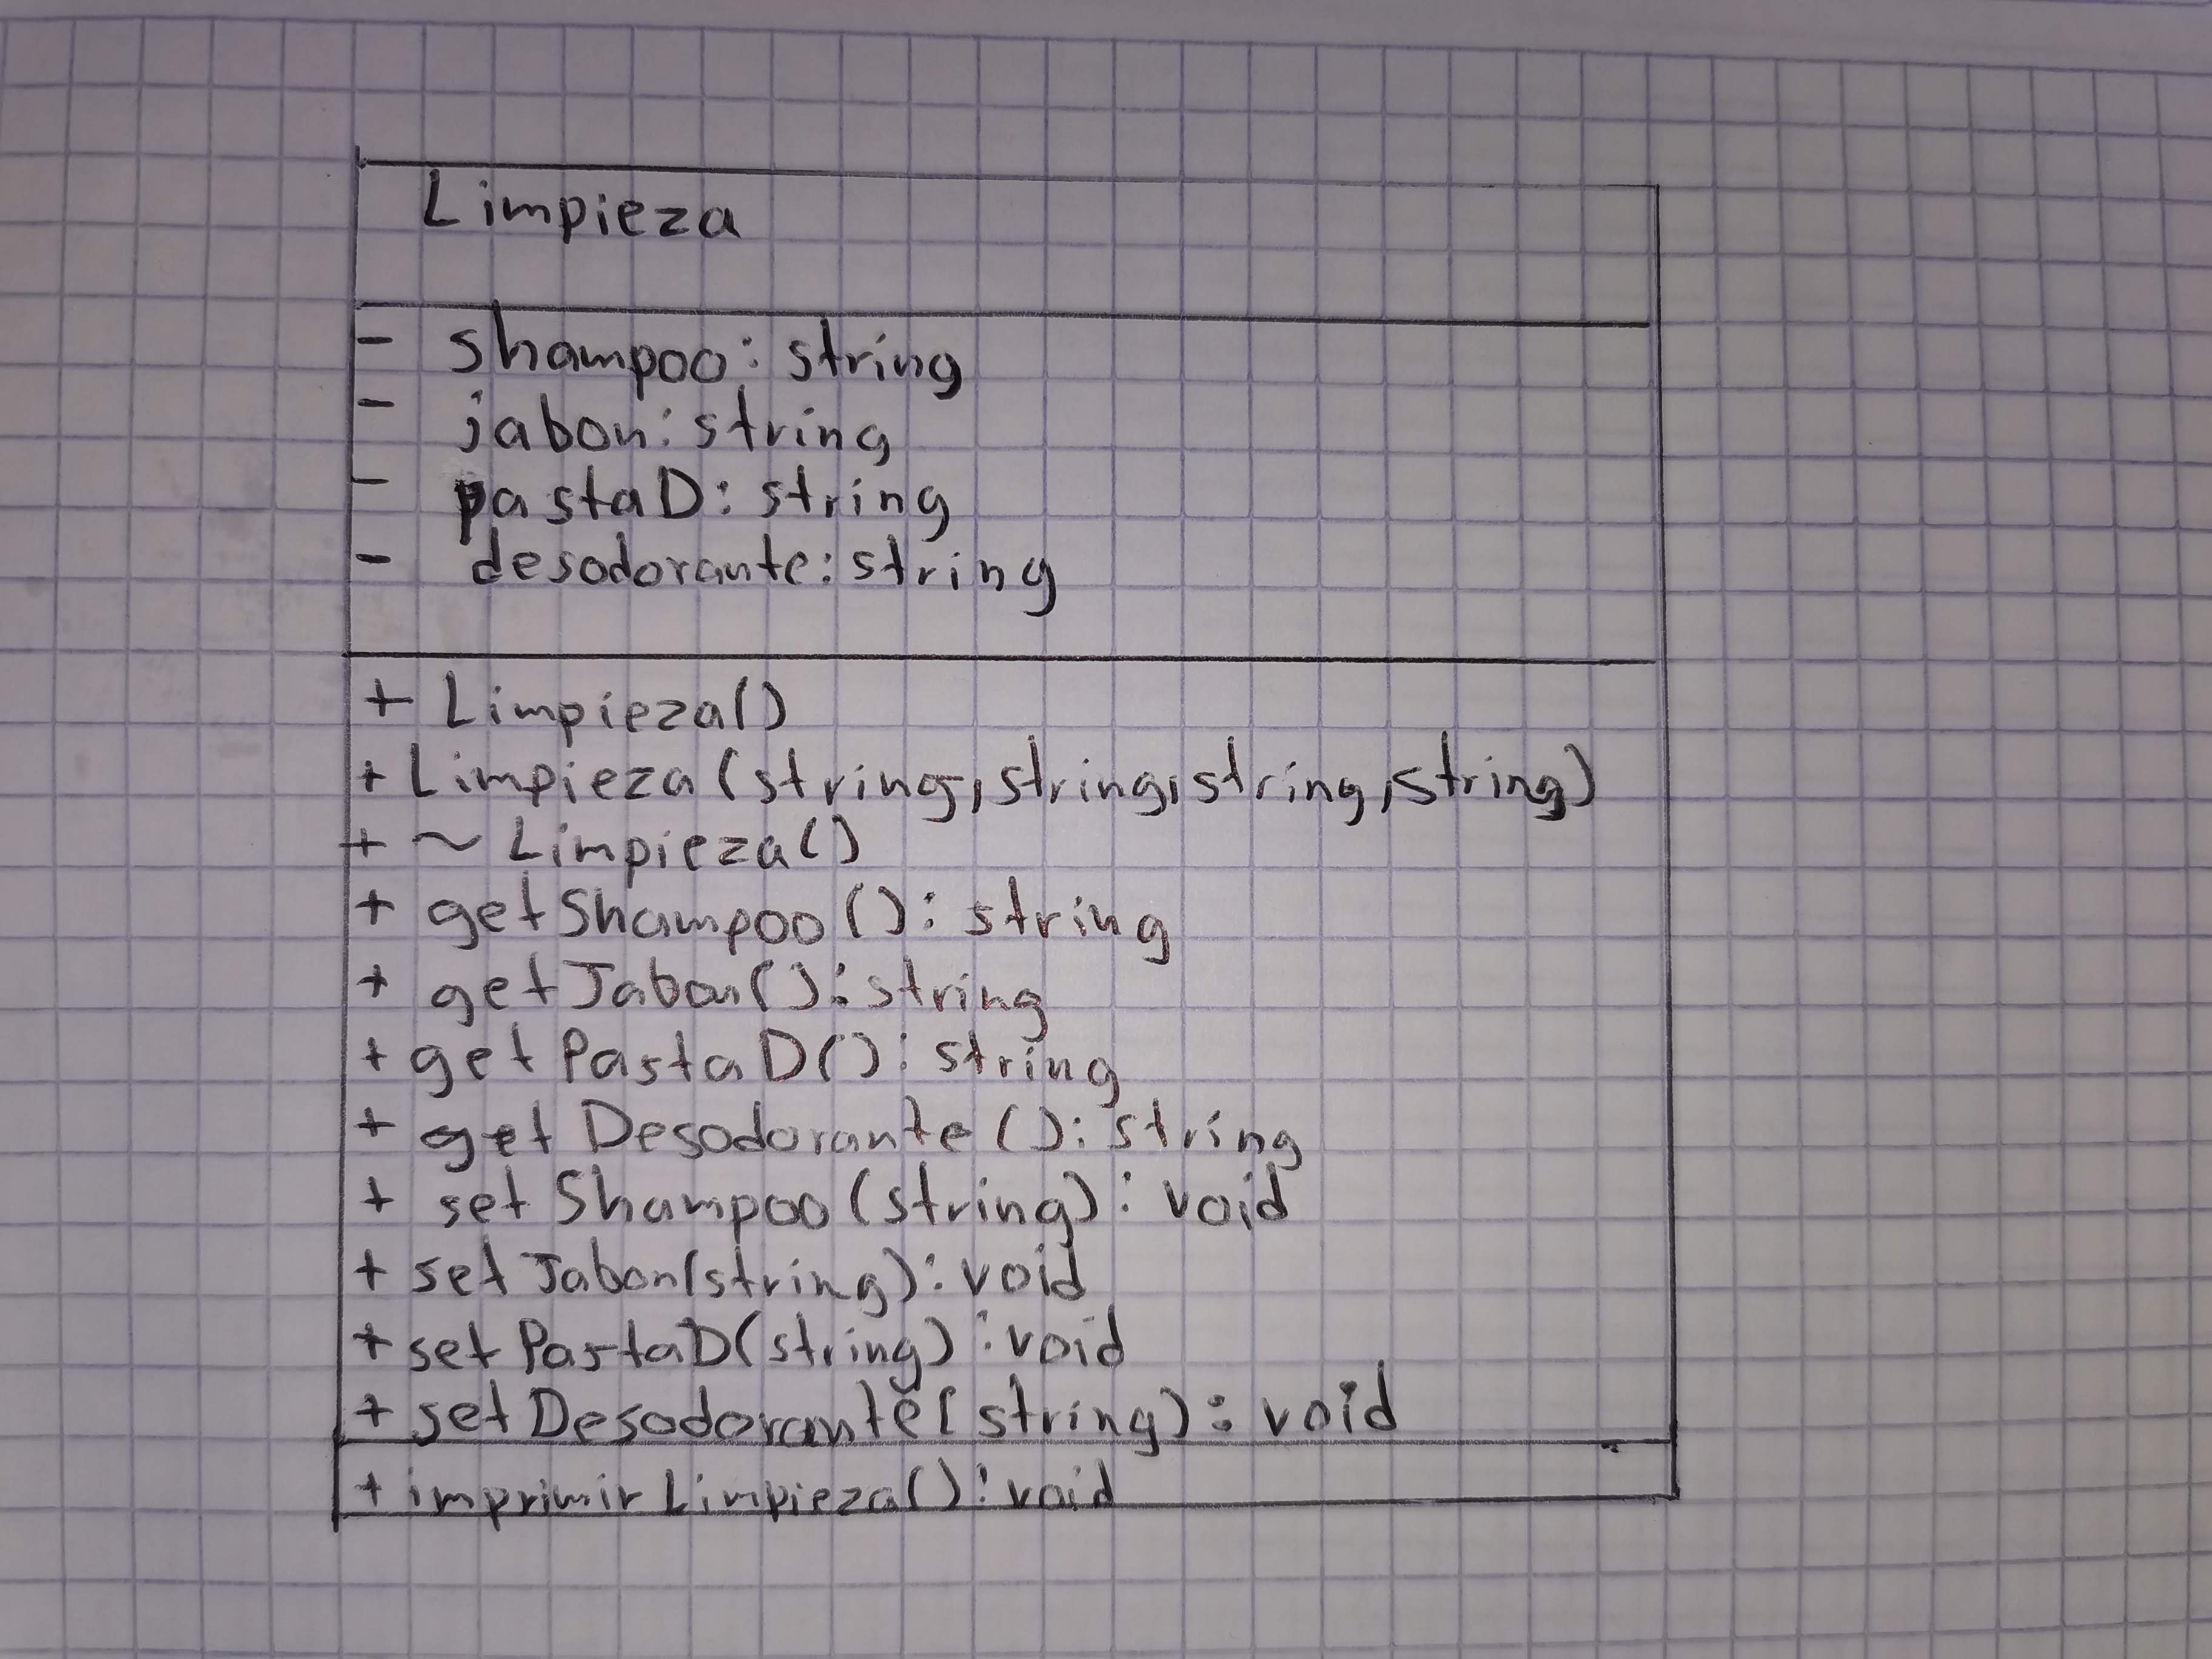 Limpieza
- shampoo: string
- jabon: string
- pastaD: string
- desodorante: string
+ Limpieza()
+ Limpieza (string, string, string, string)
+ ~ Limpieza()
+ getShampoo(): string
+ getJabon(): string
+ getPastaD(): string
+ getDesodorante(): string
+ setShampoo(string): void
+ setJabon(string): void
+ setPastaD(string): void
+ setDesodorante(string): void
+ imprimirLimpieza(): void